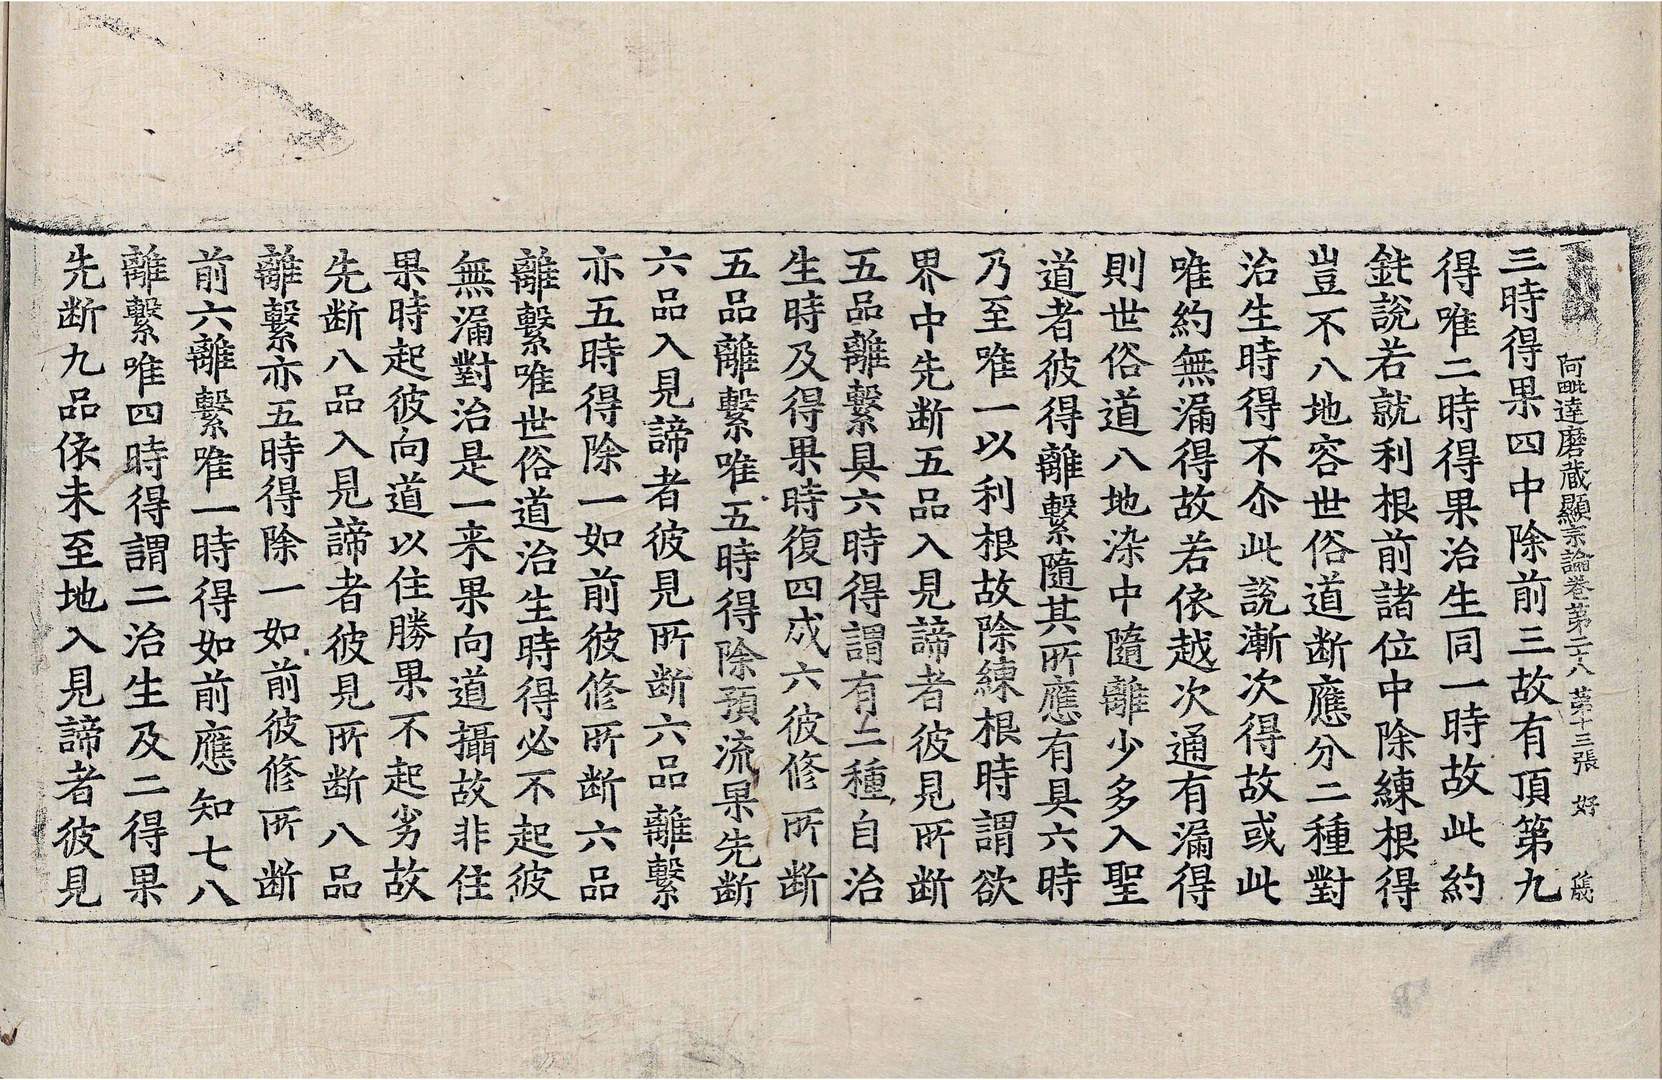 阿毗達磨蔵顯宗論卷第二十八 第十三張 好 儀
三時得果四中除前三故有頂第九
得唯二時得果治生同一時故此約
鈍說若就利根前諸位中除練根得
豈不八地容世俗道断應分二種對
治生時得不尒此說漸次得故或此
唯約無漏得故若依越次通有漏得
則世俗道八地染中隨離少多入聖
道者彼得離繫隨其所應有具六時
乃至唯一以利根故除練根時謂欲
界中先断五品入見諦者彼見所断
五品離繫具六時得謂有二種自治
生時及得果時復四成六彼修所断
五品離繫唯五時得除預流果先断
六品入見諦者彼見所断六品離繫
亦五時得除一如前彼修所断六品
離繫唯世俗道治生時得必不起彼
無漏對治是一来果向道攝故非住
果時起彼向道以住勝果不起劣故
先断八品入見諦者彼見所断八品
離繫亦五時得除一如前彼修所断
前六離繫唯一時得如前應知七八
離繫唯四時得謂二治生及二得果
先断九品依未至地入見諦者彼見